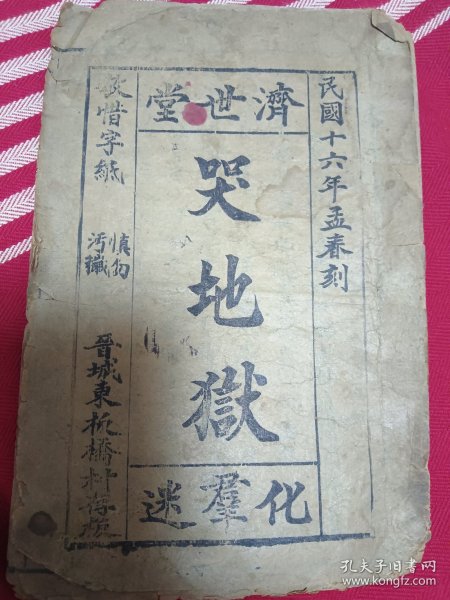 民國十六年孟春刻
濟世堂
哭地獄
化羣迷
敬惜字紙
慎勿
污穢
晉城東板橋村存板
孔夫子旧书网
www.kongfz.com